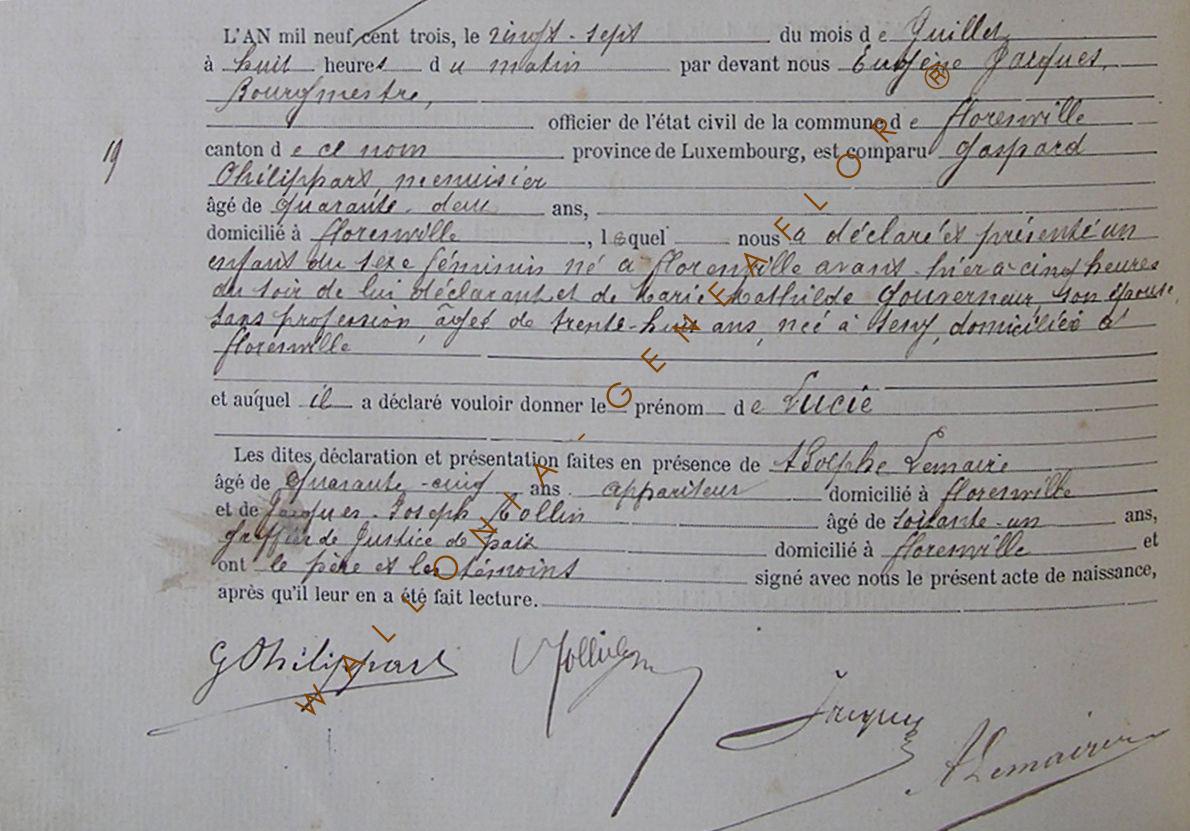 L'AN mil neuf cent trois, le vingt-sept du mois de Juillet
à huit heures du matin par devant nous Eugène Jacques,
Bourgmestre,
officier de l'état civil de la commune de Florenville
19
canton de ce nom province de Luxembourg, est comparu Gaspard
Philippart, menuisier
âgé de quarante-deux ans,
domicilié à Florenville, lequel nous a déclaré et présenté un
enfant du sexe féminin né à Florenville avant-hier à cinq heures
du soir de lui déclarant et de Marie Mathilde Gouverneur, son épouse,
sans profession, âgée de trente-huit ans, née à Izel, domiciliée à
Florenville
et auquel il a déclaré vouloir donner le prénom de Lucie
Les dites déclaration et présentation faites en présence de Adolphe Lemaire
âgé de quarante-cinq ans appariteur domicilié à Florenville
et de Jacques-Joseph Collin âgé de soixante-un ans,
greffier de Justice de paix domicilié à Florenville et
ont le père et les témoins signé avec nous le présent acte de naissance,
après qu'il leur en a été fait lecture.
G Philippart
Jacques
A Lemaire
WALLONIA-GENEAFLOR®